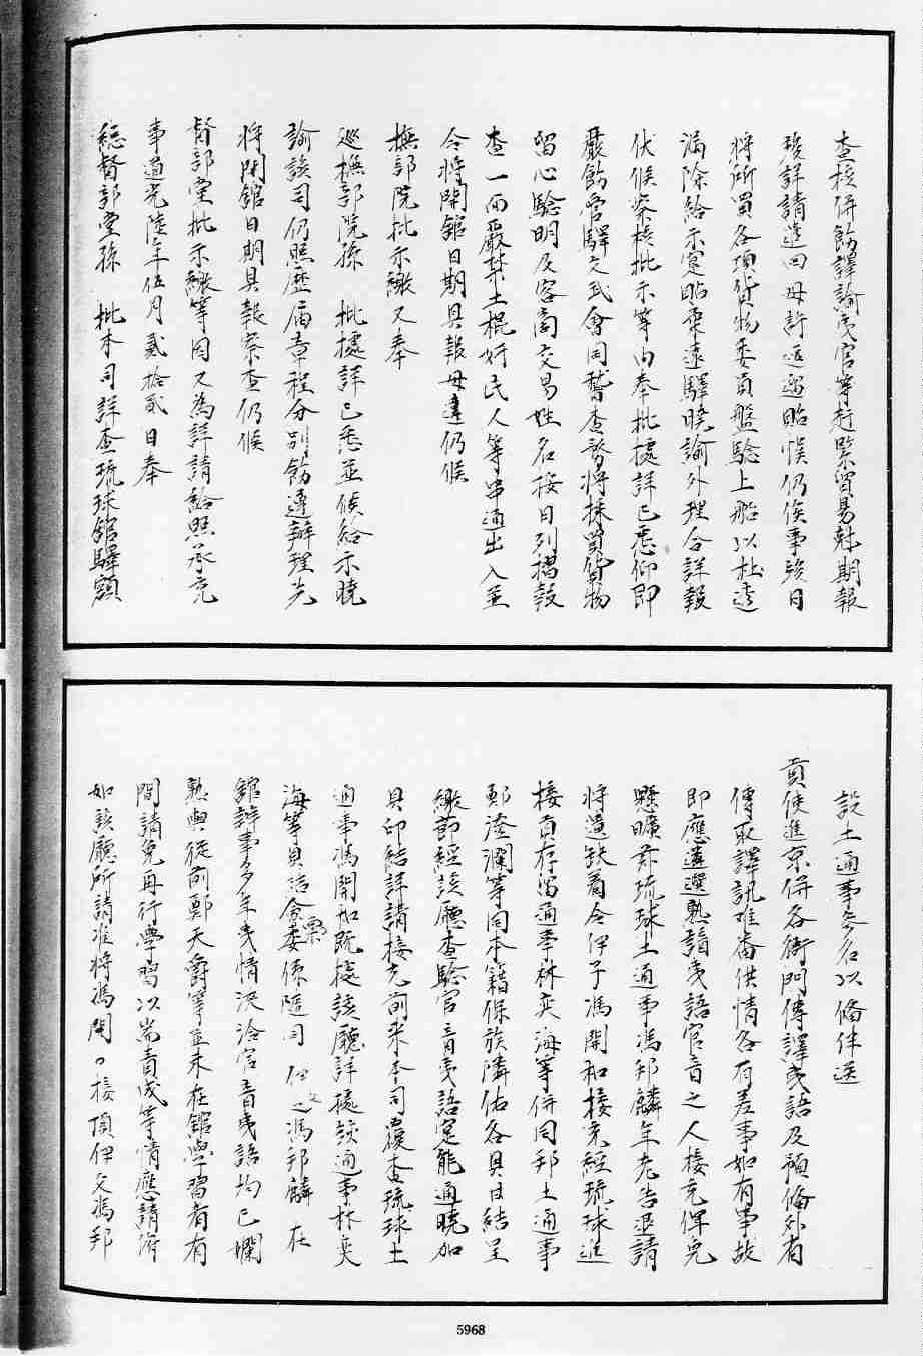 查核併飭譯諭夷官等赶緊貿易尅期報
竣詳請遣回毋許逗遛貽悞仍俟事竣日
將所買各項貨物委員盤驗上船以杜透
漏除給示寔貼柔遠驛曉諭外理合詳報
伏候察核批示等由奉批據詳已悉仰即
嚴飭管驛文武會同稽查督將採買貨物
留心驗明及客商交易姓名按日列摺報
查一面嚴禁土棍奸民人等串通出入並
令將開館日期具報毋違仍候
撫部院批示繳又奉
巡撫部院孫 批據詳已悉並候給示曉
諭該司仍照歷届章程分别飭遵辦理先
將開館日期具報察查仍候
督部堂批示繳等因又為詳請給照承充
事道光陸年伍月貳拾貳日奉
總督部堂孫 批本司詳查琉球館驛額
設土通事多名以備伴送
貢使進京併各衙門傳譯夷語及預備外省
傳取譯訊难畨供情各有差事如有事故
即應遴選熟諳夷語官音之人接充俾免
懸曠玆琉球土通事馮邦麟年老告退請
將遺缺着令伊子馮開和接充經琉球進
接貢存留通事林奕海等併同邦土通事
鄭淩瀾等同本籍保族隣佑各具甘結呈
繳節經該廳查驗官音夷語寔能通曉加
具印結詳請接充前来本司覆查琉球土
通事馮開和既據該廳詳據該通事林奕
海等具結僉稟委係隨同伊父馮邦麟在
館辦事多年夷情浹洽官音夷語均已嫻
熟與從前鄭天爵等並未在館學習者有
間請免再行學習以耑責成等情應請俯
如該廳所請准將馮開口接頂伊父馮邦
5968